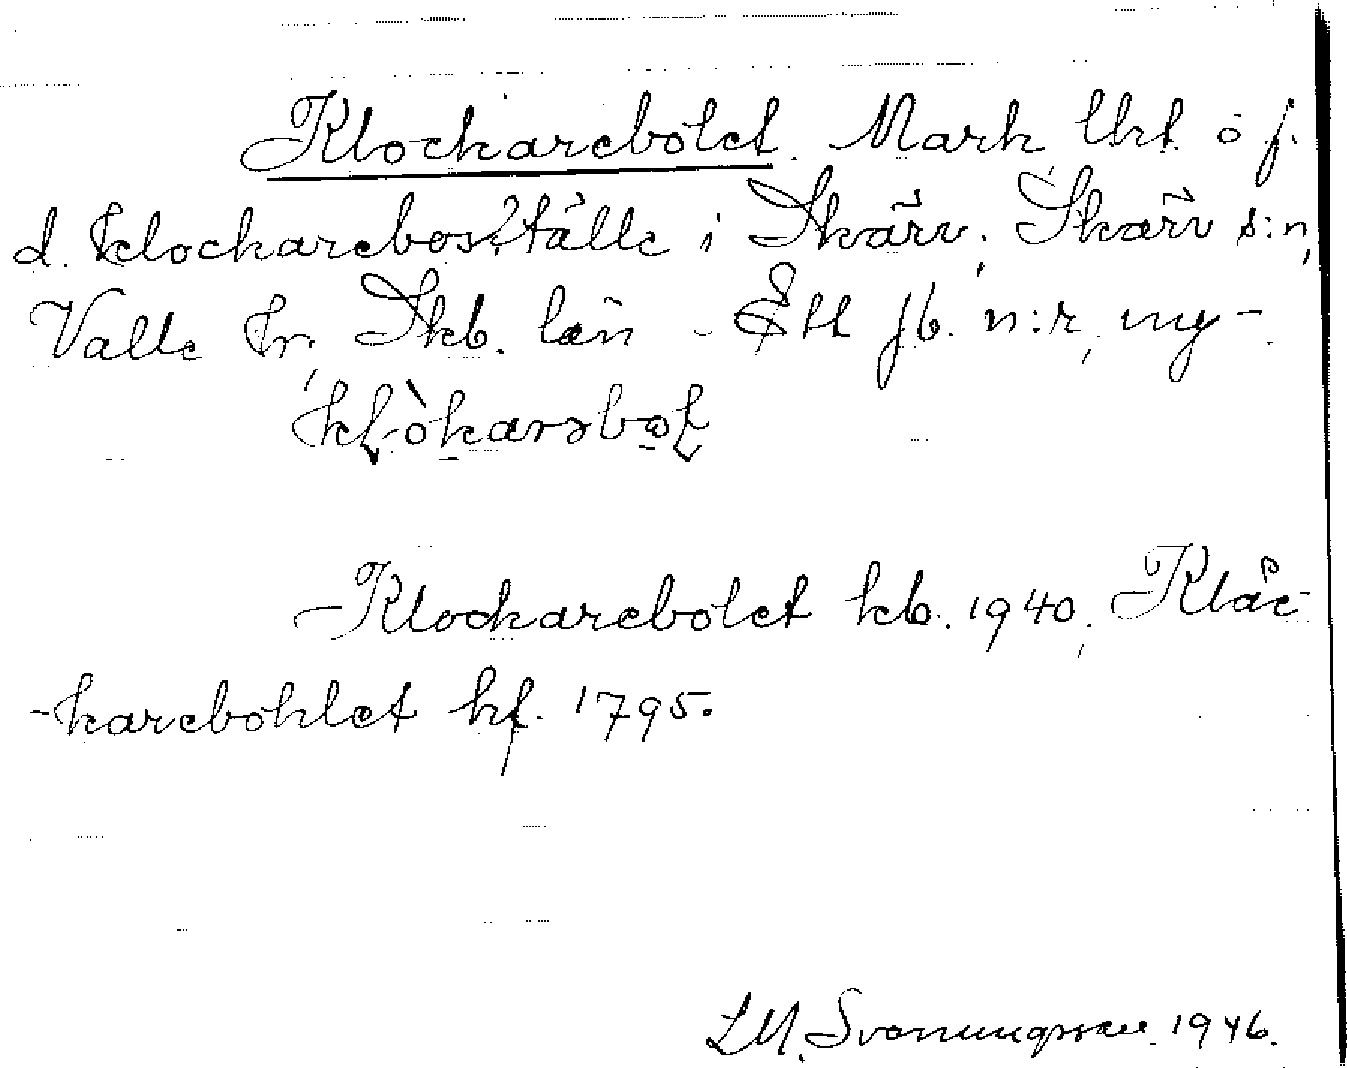 Klockarebolet. Mark Utk. ö f.
d. klockareboställe i Skärv, Skärv s:n,
Valle hr, Skb. län - Ett jb. n:r, ny-
Klockarebolet kb. 1940, Klåc-
-karebohlet hf. 1795.
LM. Svenungsson 1946.